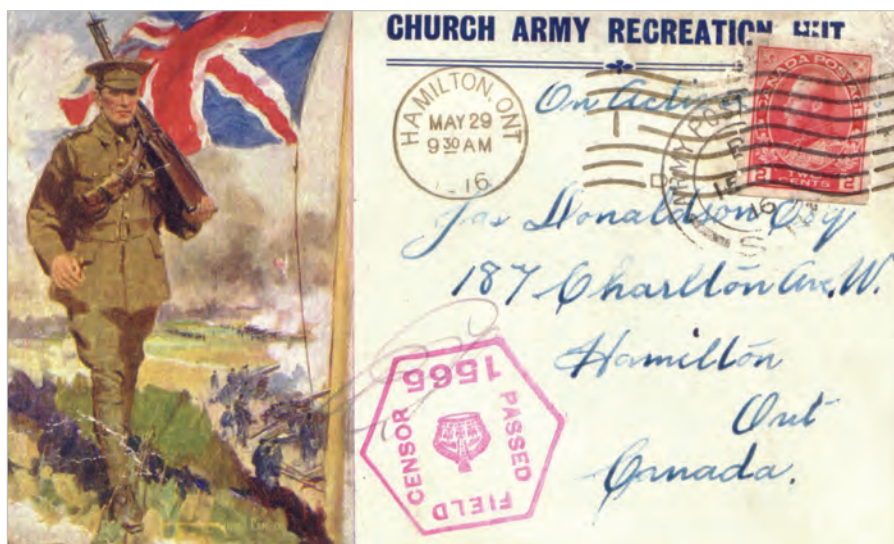 CHURCH ARMY RECREATION HUT
HAMILTON, ONT
MAY 29
9 30 AM
16
On Active
CANADA POSTAGE
2 TWO CENTS 2
ARMY POST
15
16
Jas Donaldson Esq
187 Charlton Ave. W.
Hamilton
Ont
Canada.
PASSED
FIELD
CENSOR
1565